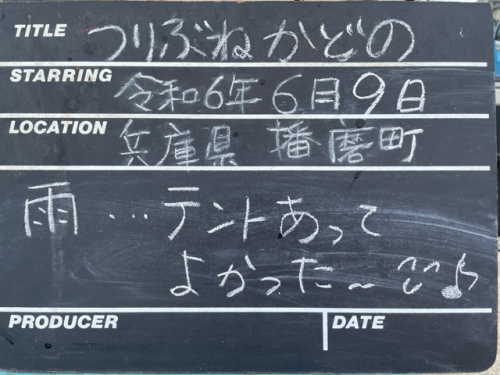 TITLE つりぶねかどの
STARRING 令和6年6月9日
LOCATION 兵庫県 播磨町
雨…テントあって
よかった〜♪
PRODUCER DATE